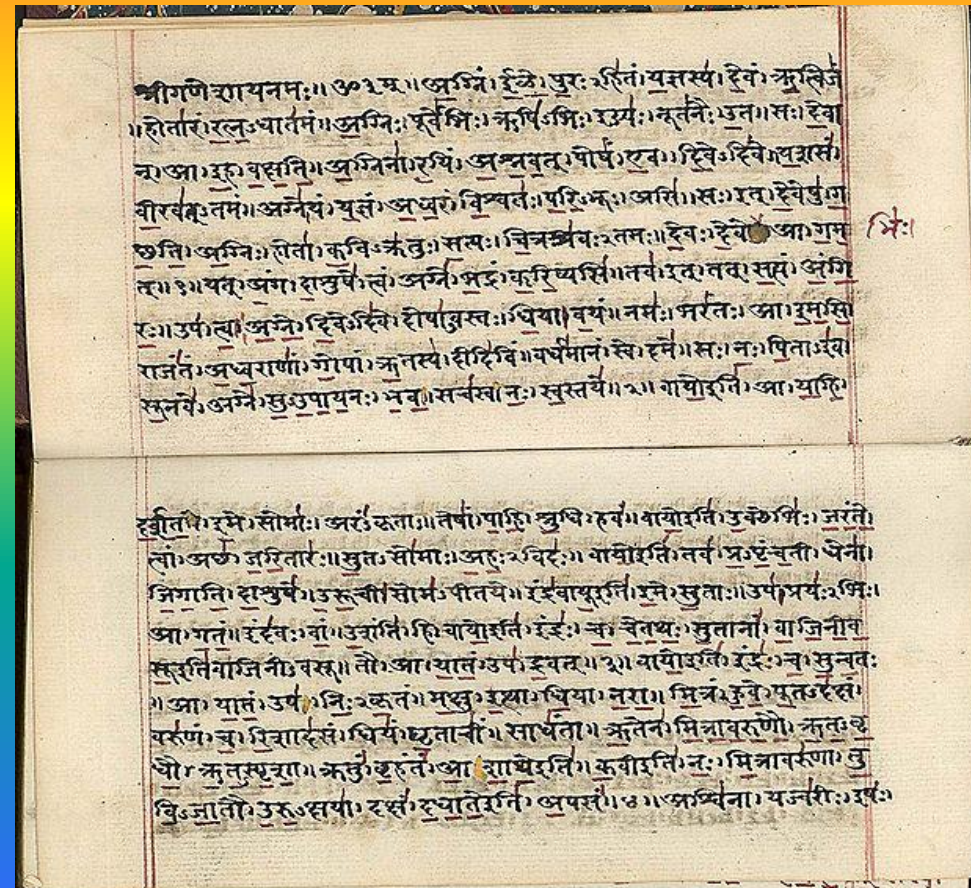 श्रीगणेशायनमः॥ ॐ३म्॥ अ॒ग्निं। ई॒ळे॒। पु॒रःऽहि॑तं। य॒ज्ञस्य॑। दे॒वं। ऋ॒त्विजं॑
॥होता॑रं। र॒त्न॒ऽधात॑मं॥ अ॒ग्निः। पूर्वे॑भिः। ऋषि॑ऽभिः। ईड्यः॑। नूत॑नैः। उ॒त॥ सः। दे॒वा
न्। आ। इ॒ह। व॒क्ष॒ति॒॥ अ॒ग्निना॑। र॒यिं। अ॒श्न॒व॒त्। पोषं॑। ए॒व। दि॒वेऽदि॑वे॥ य॒शसं॑
वी॒रव॑त्ऽतमं॥ अग्ने॑। यं। य॒ज्ञं। अ॒ध्व॒रं। वि॒श्वतः॑। प॒रि॒ऽभूः। असि॑॥ सः। इत्। दे॒वेषु॑। ग॒
च्छ॒ति॒॥ अ॒ग्निः। होता॑। क॒विऽक्र॑तुः। स॒त्यः। चि॒त्रश्र॑वःऽतमः॥ दे॒वः। दे॒वे आ। ग॒म॒
भिः।
त्॥१॥ यत्। अं॒ग। दा॒शुषे॑। त्वं। अग्ने॑। भ॒द्रं। क॒रि॒ष्यसि॑॥ तव॑। इत्। तत्। स॒त्यं। अं॒गि॒
रः॒॥ उप॑। त्वा॒। अ॒ग्ने॒। दि॒वेऽदि॑वे। दोषा॑ऽवस्तः। धि॒या। व॒यं॥ नमः॑। भरं॑तः। आ। इ॒म॒सि॒॥
राजं॑तं। अ॒ध्व॒राणां॑। गो॒पां। ऋ॒तस्य॑। दीदि॑विं॥ वर्ध॑मानं। स्वे। दमे॑॥ सः। नः॒। पि॒ताऽइ॑व।
सू॒नवे॑। अग्ने॑। सु॒ऽउ॒पा॒य॒नः। भ॒व॒॥ सच॑स्व। नः॒। स्व॒स्तये॑॥२॥ वायो॒इति॑। आ। या॒हि॒।
द॒र्श॒त॒। इ॒मे। सोमाः॑। अरं॑ऽकृताः॥ तेषां॑। पा॒हि॒। श्रु॒धि। हवं॑॥ वायो॒इति॑। उ॒क्थेभिः॑। ज॒रं॒ते॒।
त्वां। अच्छ॑। ज॒रि॒तारः॑॥ सु॒तऽसो॑माः। अ॒हः॒ऽविदः॑॥ वायो॒इति॑। तव॑। प्र॒ऽपृं॒च॒ती। धेना॑।
जि॒गा॒ति॒। दा॒शुषे॑॥ उ॒रू॒ची। सोम॑ऽपीतये॥ इंद्र॑वायू॒इति॑। इ॒मे। सु॒ताः॥ उप॑। प्रयः॑ऽभिः।
आ। ग॒तं॒॥ इंद॑वः। वां॒। उ॒शंति॑। हि॥ वायो॒इति॑। इंद्रः॑। च॒। चे॒त॒थः॒। सु॒तानां॑। वा॒जि॒नी॒व॒
सू॒इति॑वाजिनीऽवसू॥ तौ। आ। या॒तं॒। उप॑। द्र॒वत्॥३॥ वायो॒इति॑। इंद्रः॑। च॒। सु॒न्व॒तः
॥ आ। या॒तं॒। उप॑। निः॒ऽकृ॒तं॥ म॒क्षु। इ॒त्था। धि॒या। न॒रा॒॥ मि॒त्रं। हु॒वे॒। पू॒तऽद॑क्षं।
वरु॑णं। च॒। रि॒शाद॑सं॥ धियं॑। घृ॒ताचीं॑। साधं॑ता॥ ऋ॒तेन॑। मि॒त्रा॒व॒रु॒णौ॒। ऋ॒त॒ऽवृ॒
धौ॒। ऋ॒त॒ऽस्पृ॒शा॒॥ क्रतुं॑। बृ॒हंतं॑। आ॒शा॒थे॒इति॑॥ क॒वीइति॑। नः॒। मि॒त्रावरु॑णा। तु॒
वि॒ऽजा॒तौ। उ॒रु॒ऽक्षया॑॥ दक्षं॑। द॒धा॒ते॒इति॑। अ॒पसं॑॥४॥ अश्वि॑ना। यज्व॑रीः। इषः॑।